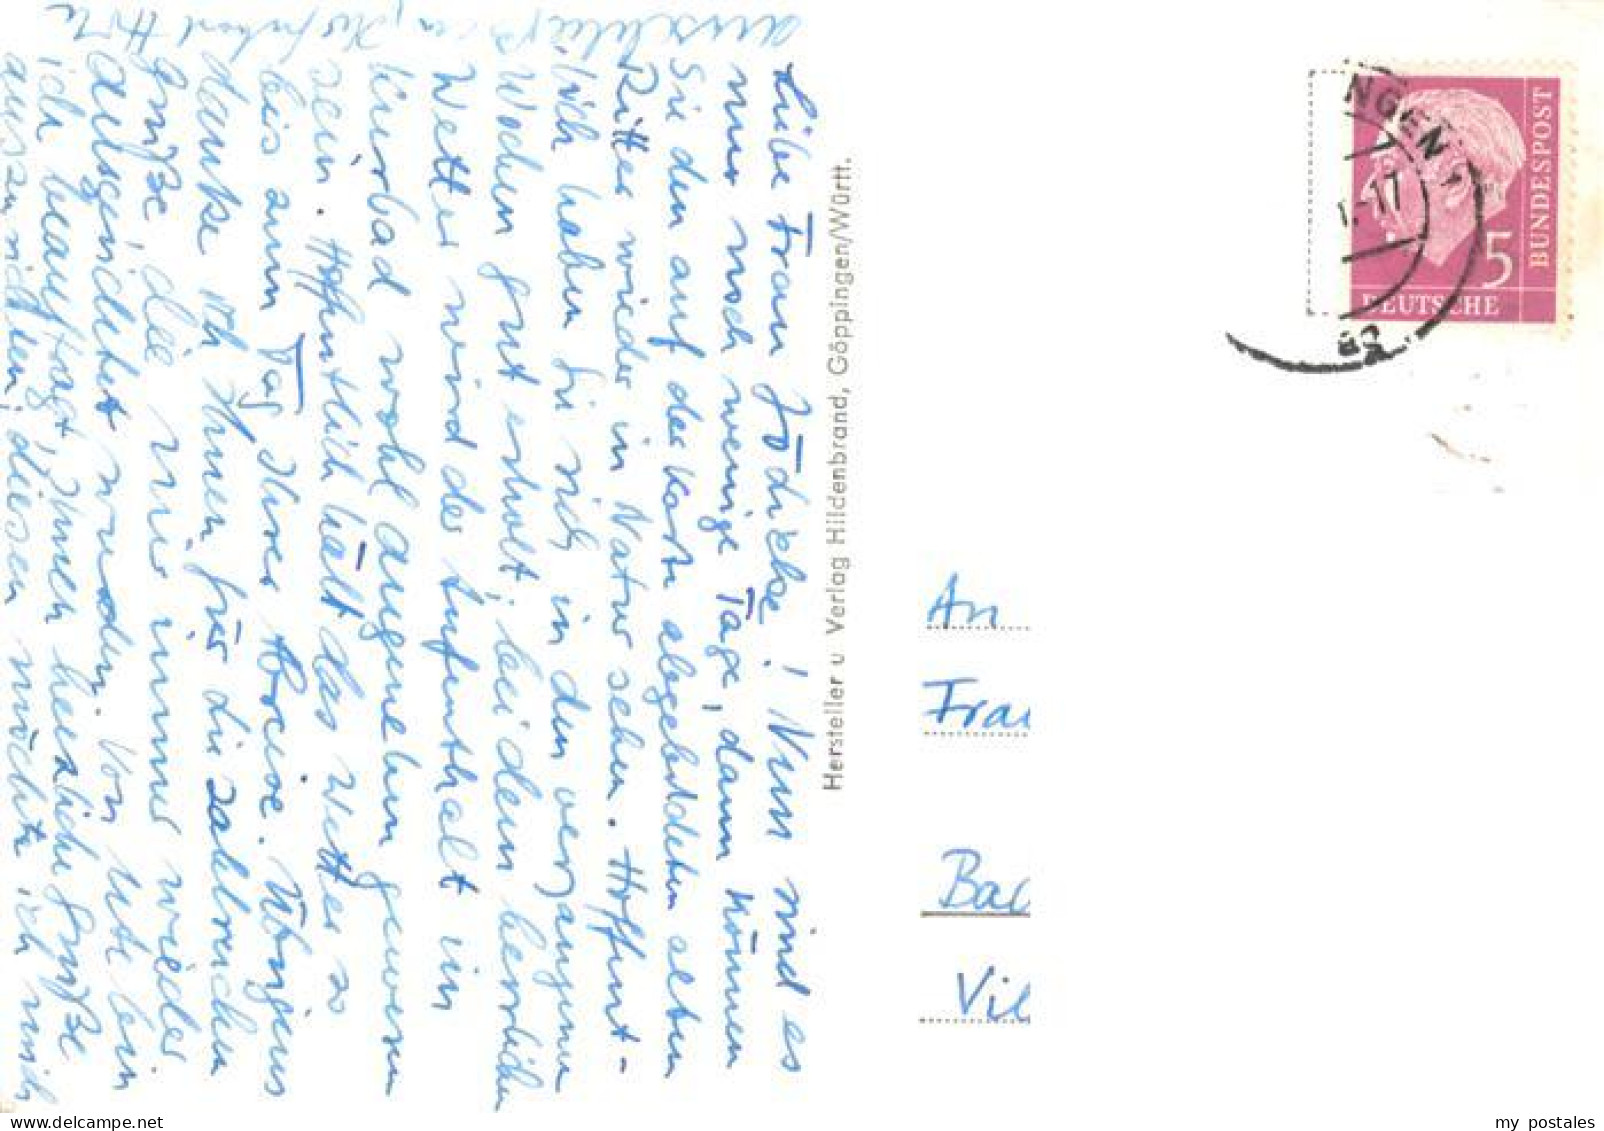 Liebe Frau Jödicke! Nun sind es
nur noch wenige Tage, dann können
Sie den auf der Karte abgebildeten alten
Ritter wieder in Natur sehen. Hoffent-
lich haben Sie sich in den vergangenen
Wochen gut erholt; bei dem herrlichen
Wetter wird der Aufenthalt im
Kurbad wohl angenehm gewesen
sein. Hoffentlich hält das Wetter so
bis zum Tag Ihrer Abreise. Übrigens
danke ich Ihnen für die zahlreichen
Grüße, die mir immer wieder
ausgerichtet wurden. Von bin
ich beauftragt, Ihnen herzliche Grüße
auszurichten, diesen möchte ich mich
Hersteller u Verlag Hildenbrand, Göppingen/Württ.
NGEN
-17
5
DEUTSCHE
BUNDESPOST
An
Frau
Bad
Vil
my postales